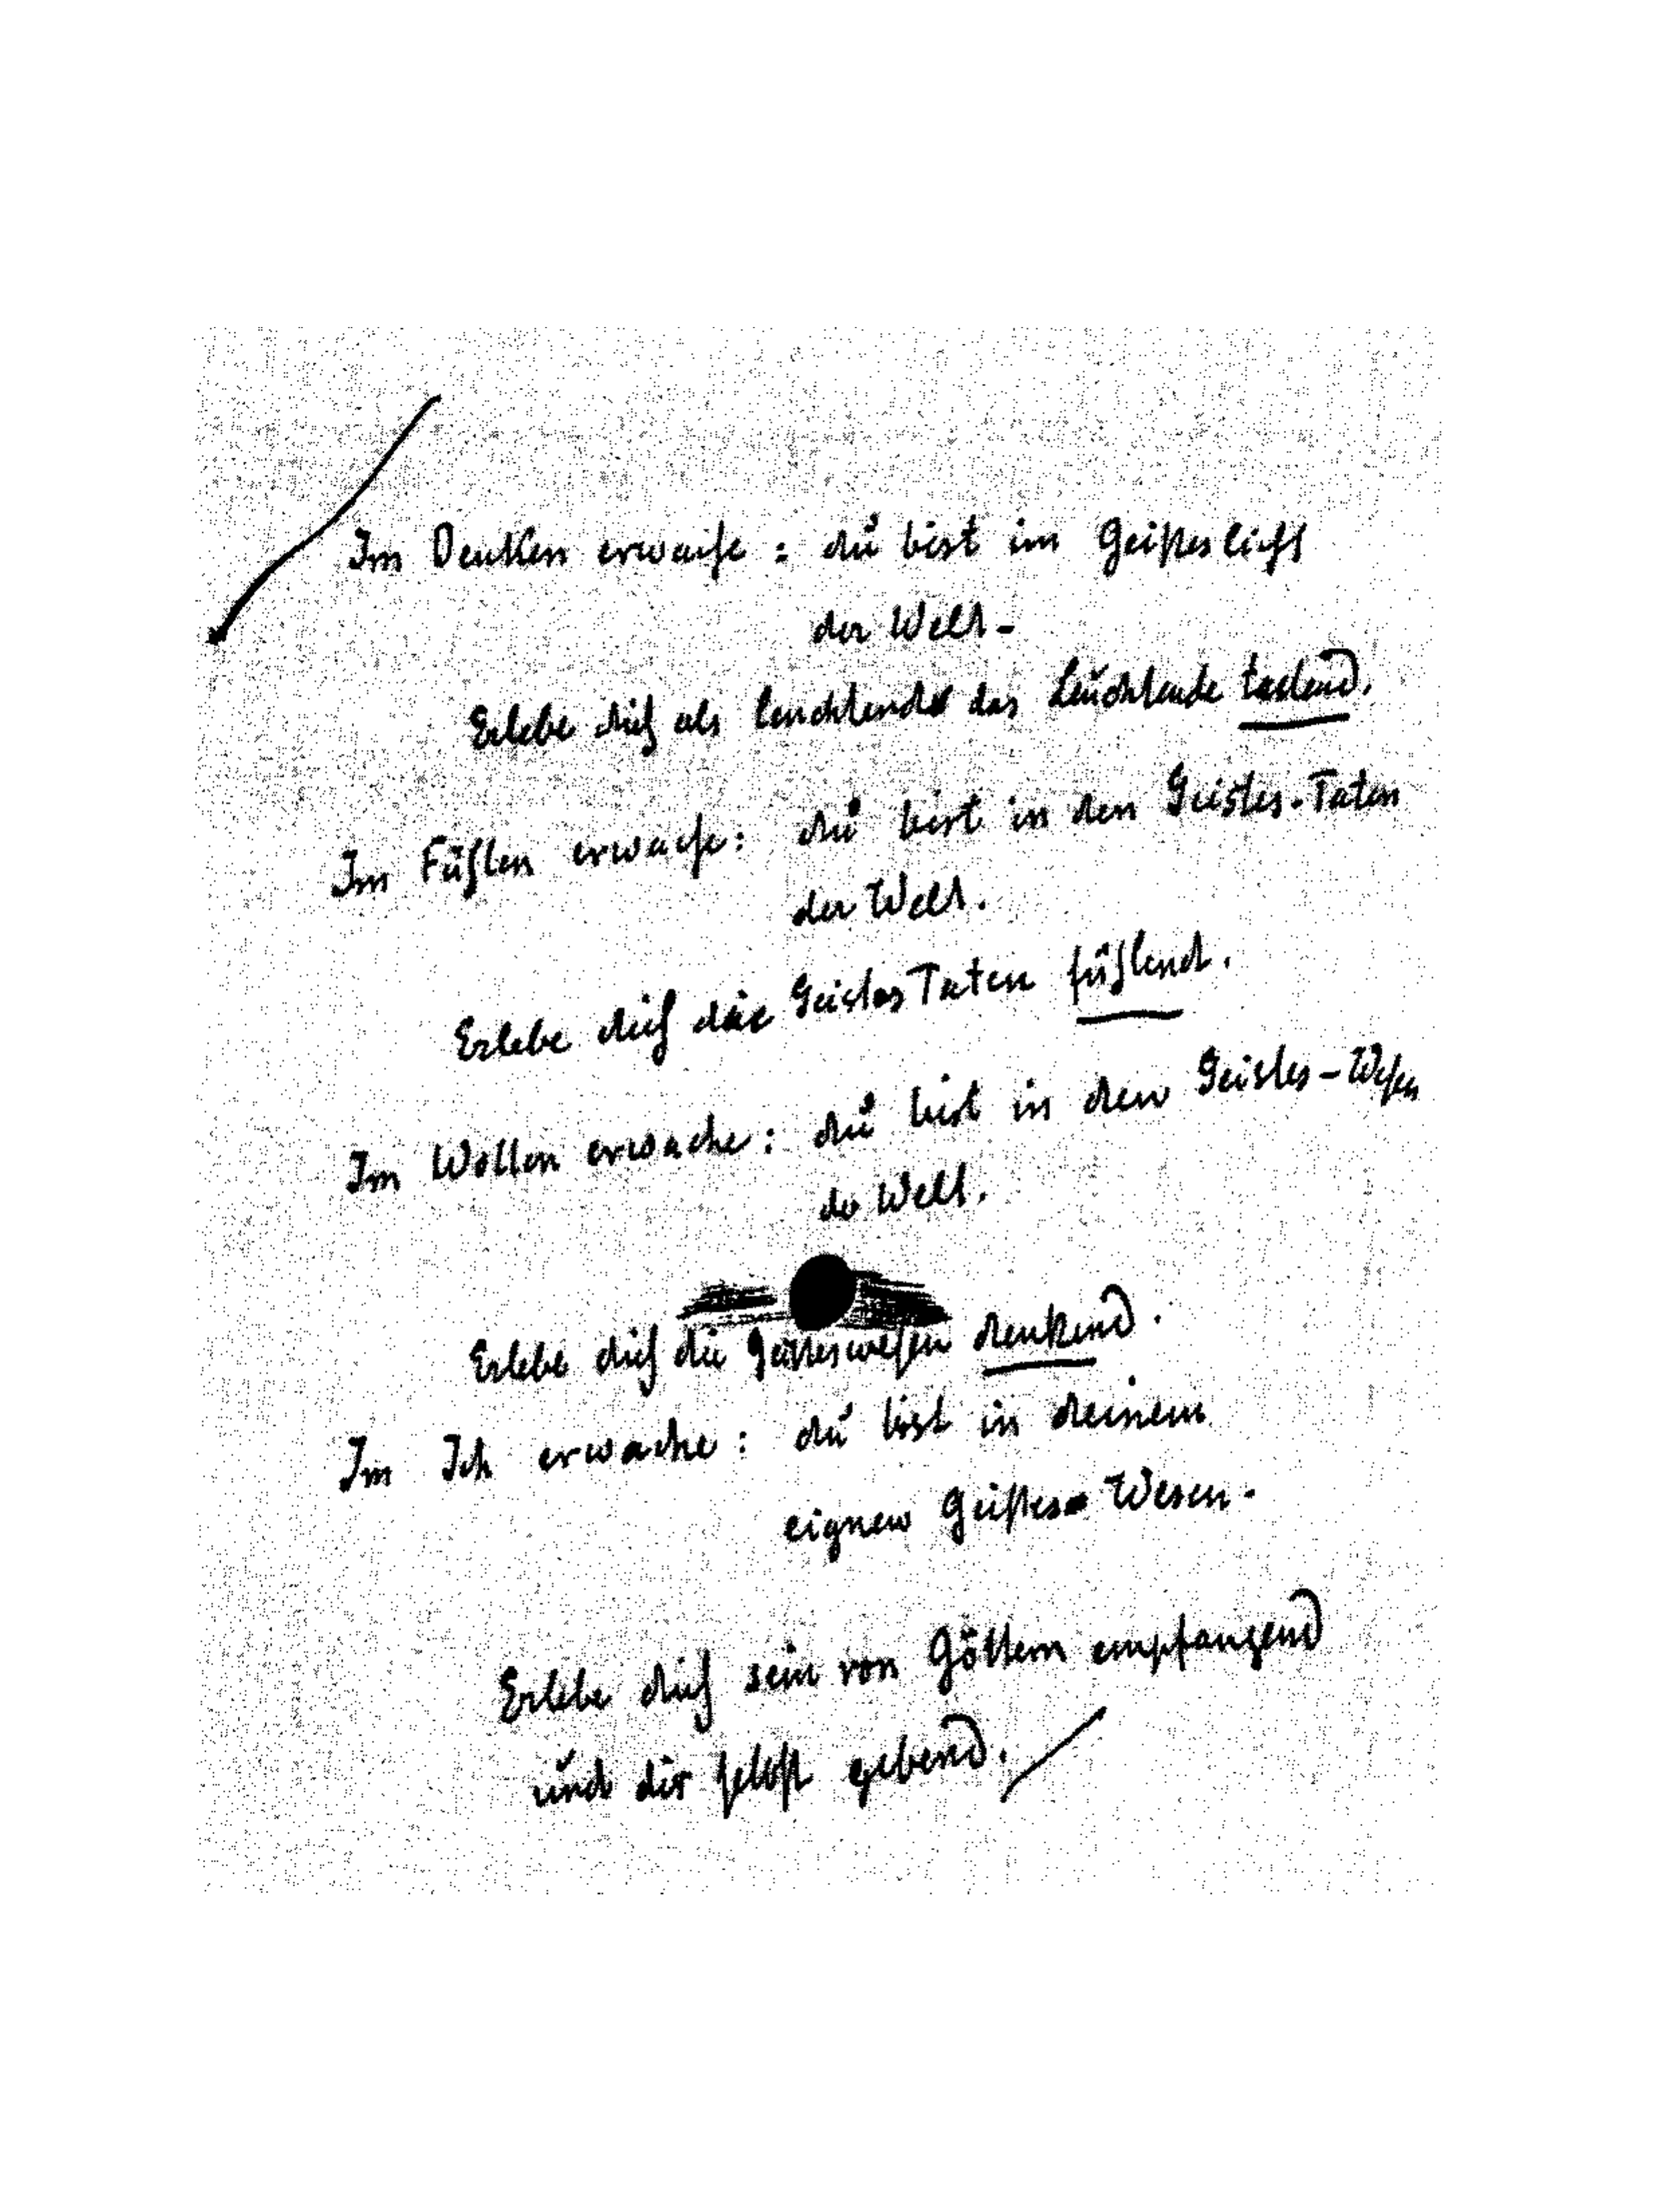 Im Denken erwache : du bist im Geisteslicht
der Welt -
Erlebe dich als leuchtend das Leuchtende tastend.
Im Fühlen erwache : du bist in den Geistes-Taten
der Welt.
Erlebe dich die Geistes Taten fühlend.
Im Wollen erwache : du bist in den Geistes-Wesen
der Welt.
Erlebe dich die Geisteswesen denkend.
Im Ich erwache : du bist in deinem
eignen Geistes Wesen.
Erlebe dich sein von Göttern empfangend
und dir selbst gebend.